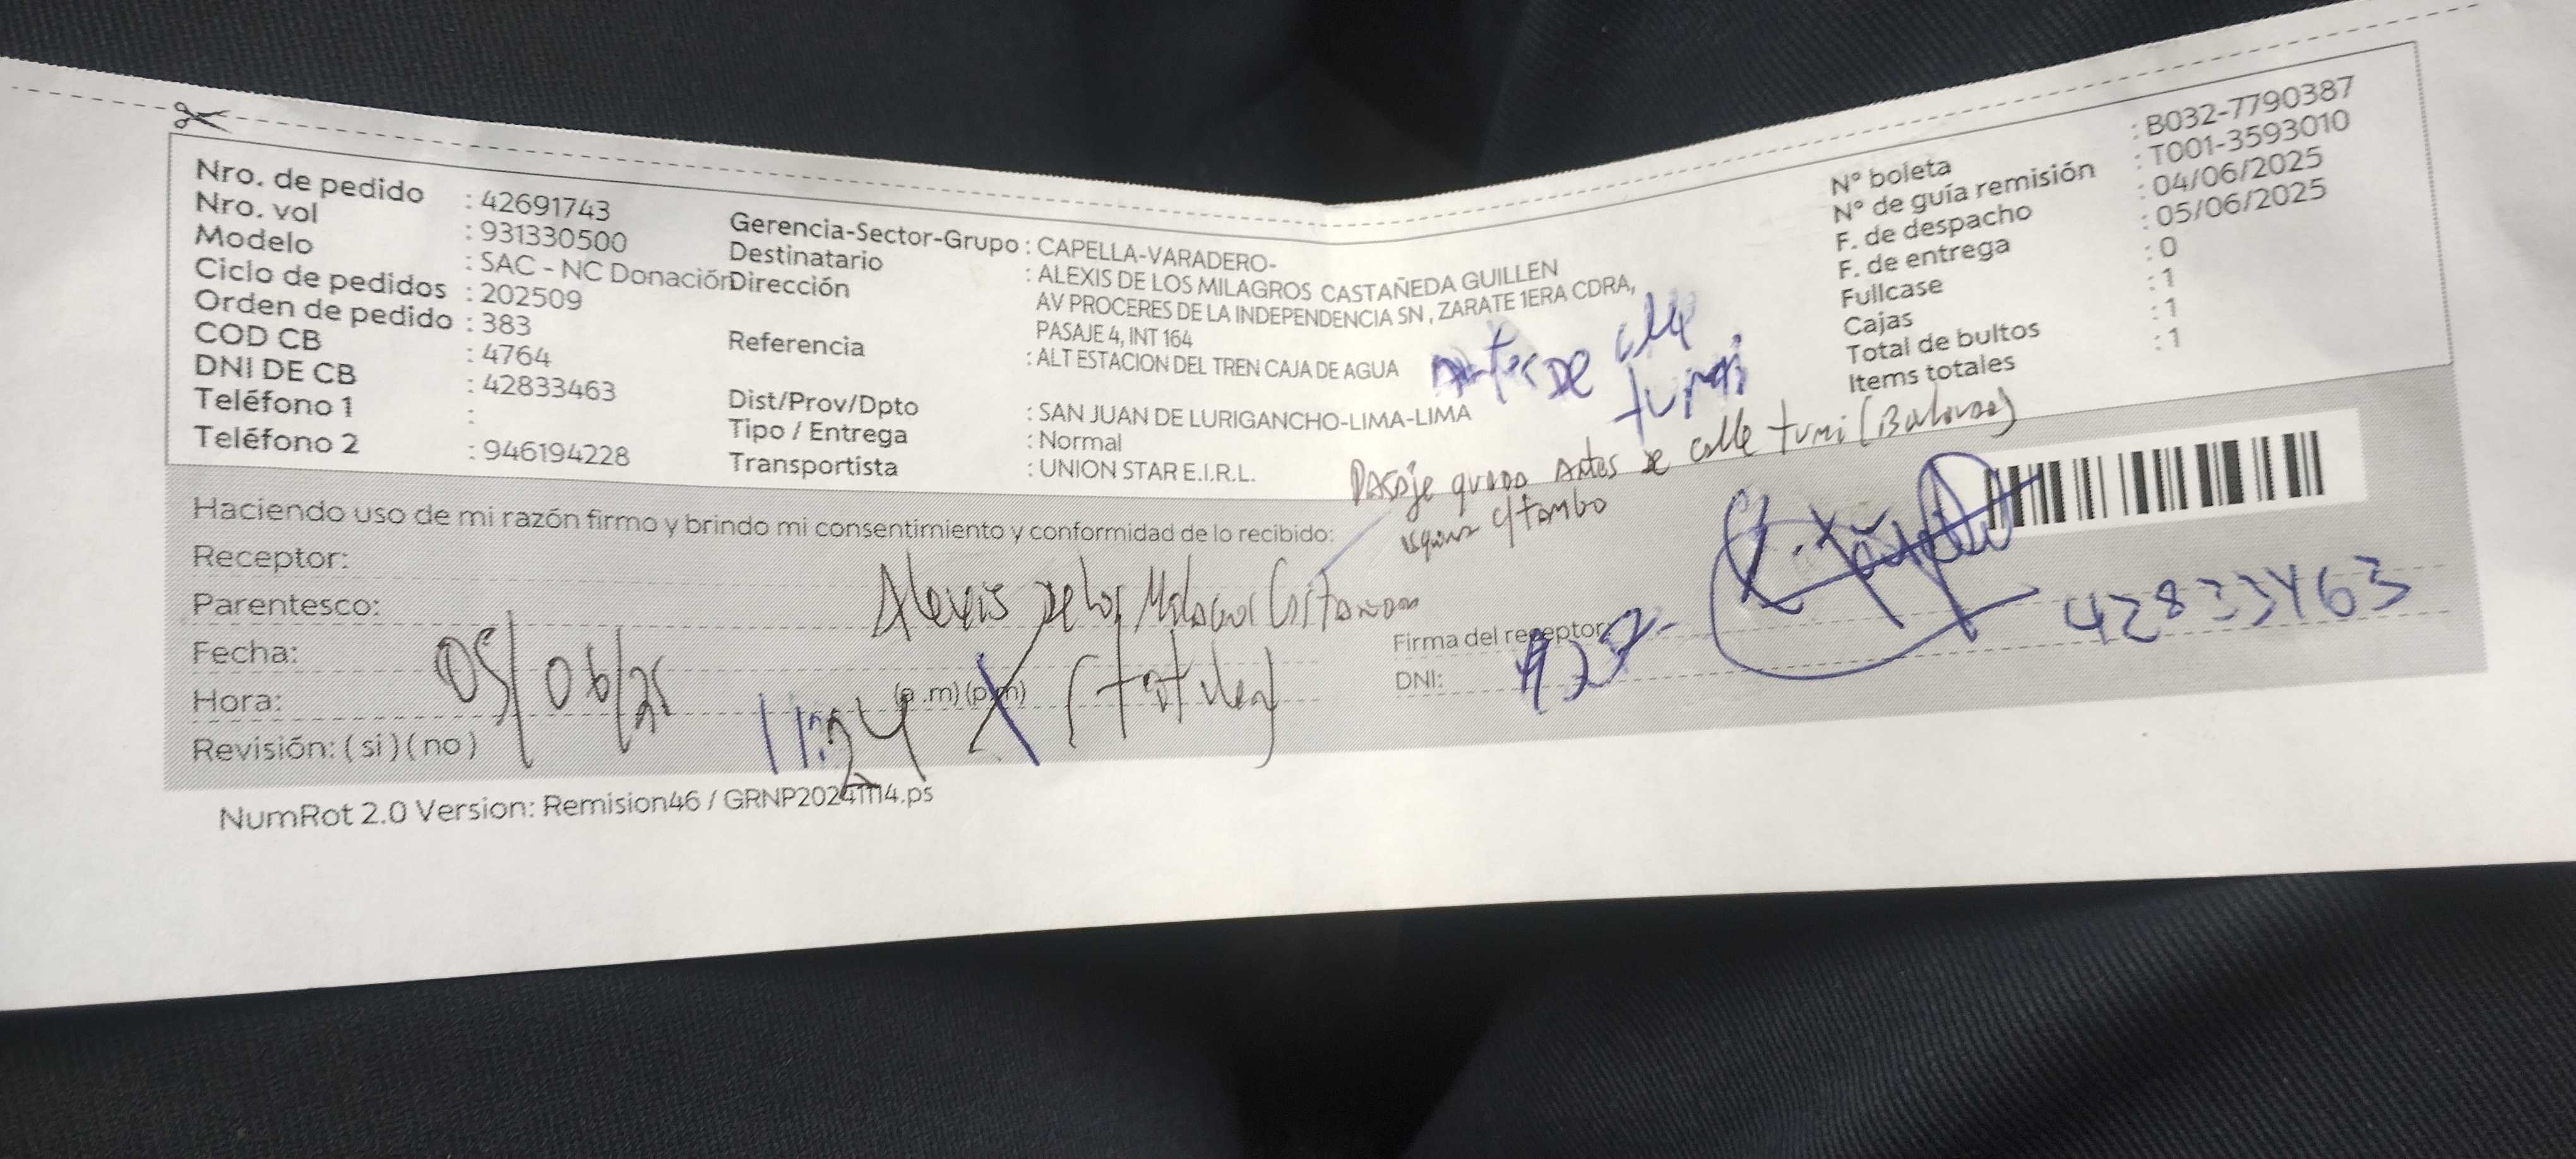 Nro. de pedido : 42691743
Nro. vol : 931330500
Modelo : SAC - NC Donación
Ciclo de pedidos : 202509
Orden de pedido : 383
COD CB : 4764
DNI DE CB : 42833463
Teléfono 1 :
Teléfono 2 : 946194228
Gerencia-Sector-Grupo : CAPELLA-VARADERO-
Destinatario : ALEXIS DE LOS MILAGROS CASTAÑEDA GUILLEN
Dirección AV PROCERES DE LA INDEPENDENCIA SN , ZARATE 1ERA CDRA,
PASAJE 4, INT 164
Referencia : ALT ESTACION DEL TREN CAJA DE AGUA
Dist/Prov/Dpto : SAN JUAN DE LURIGANCHO-LIMA-LIMA
Tipo / Entrega : Normal
Transportista : UNION STAR E.I.R.L.
Nº boleta : B032-7790387
Nº de guía remisión : T001-3593010
F. de despacho : 04/06/2025
F. de entrega : 05/06/2025
Fullcase : 0
Cajas : 1
Total de bultos : 1
Items totales : 1
Antes de calle
tumi
Pasaje antes de calle tumi
c/tambo
Haciendo uso de mi razón firmo y brindo mi consentimiento y conformidad de lo recibido:
Receptor: Alexis De los
Parentesco: (titular)
Fecha: 05/06/25
Hora: 11:24 (a .m) (p.m)
Revisión: ( si ) ( no )
Firma del receptor:
DNI: 42833463
NumRot 2.0 Version: Remision46 / GRNP20241114.ps